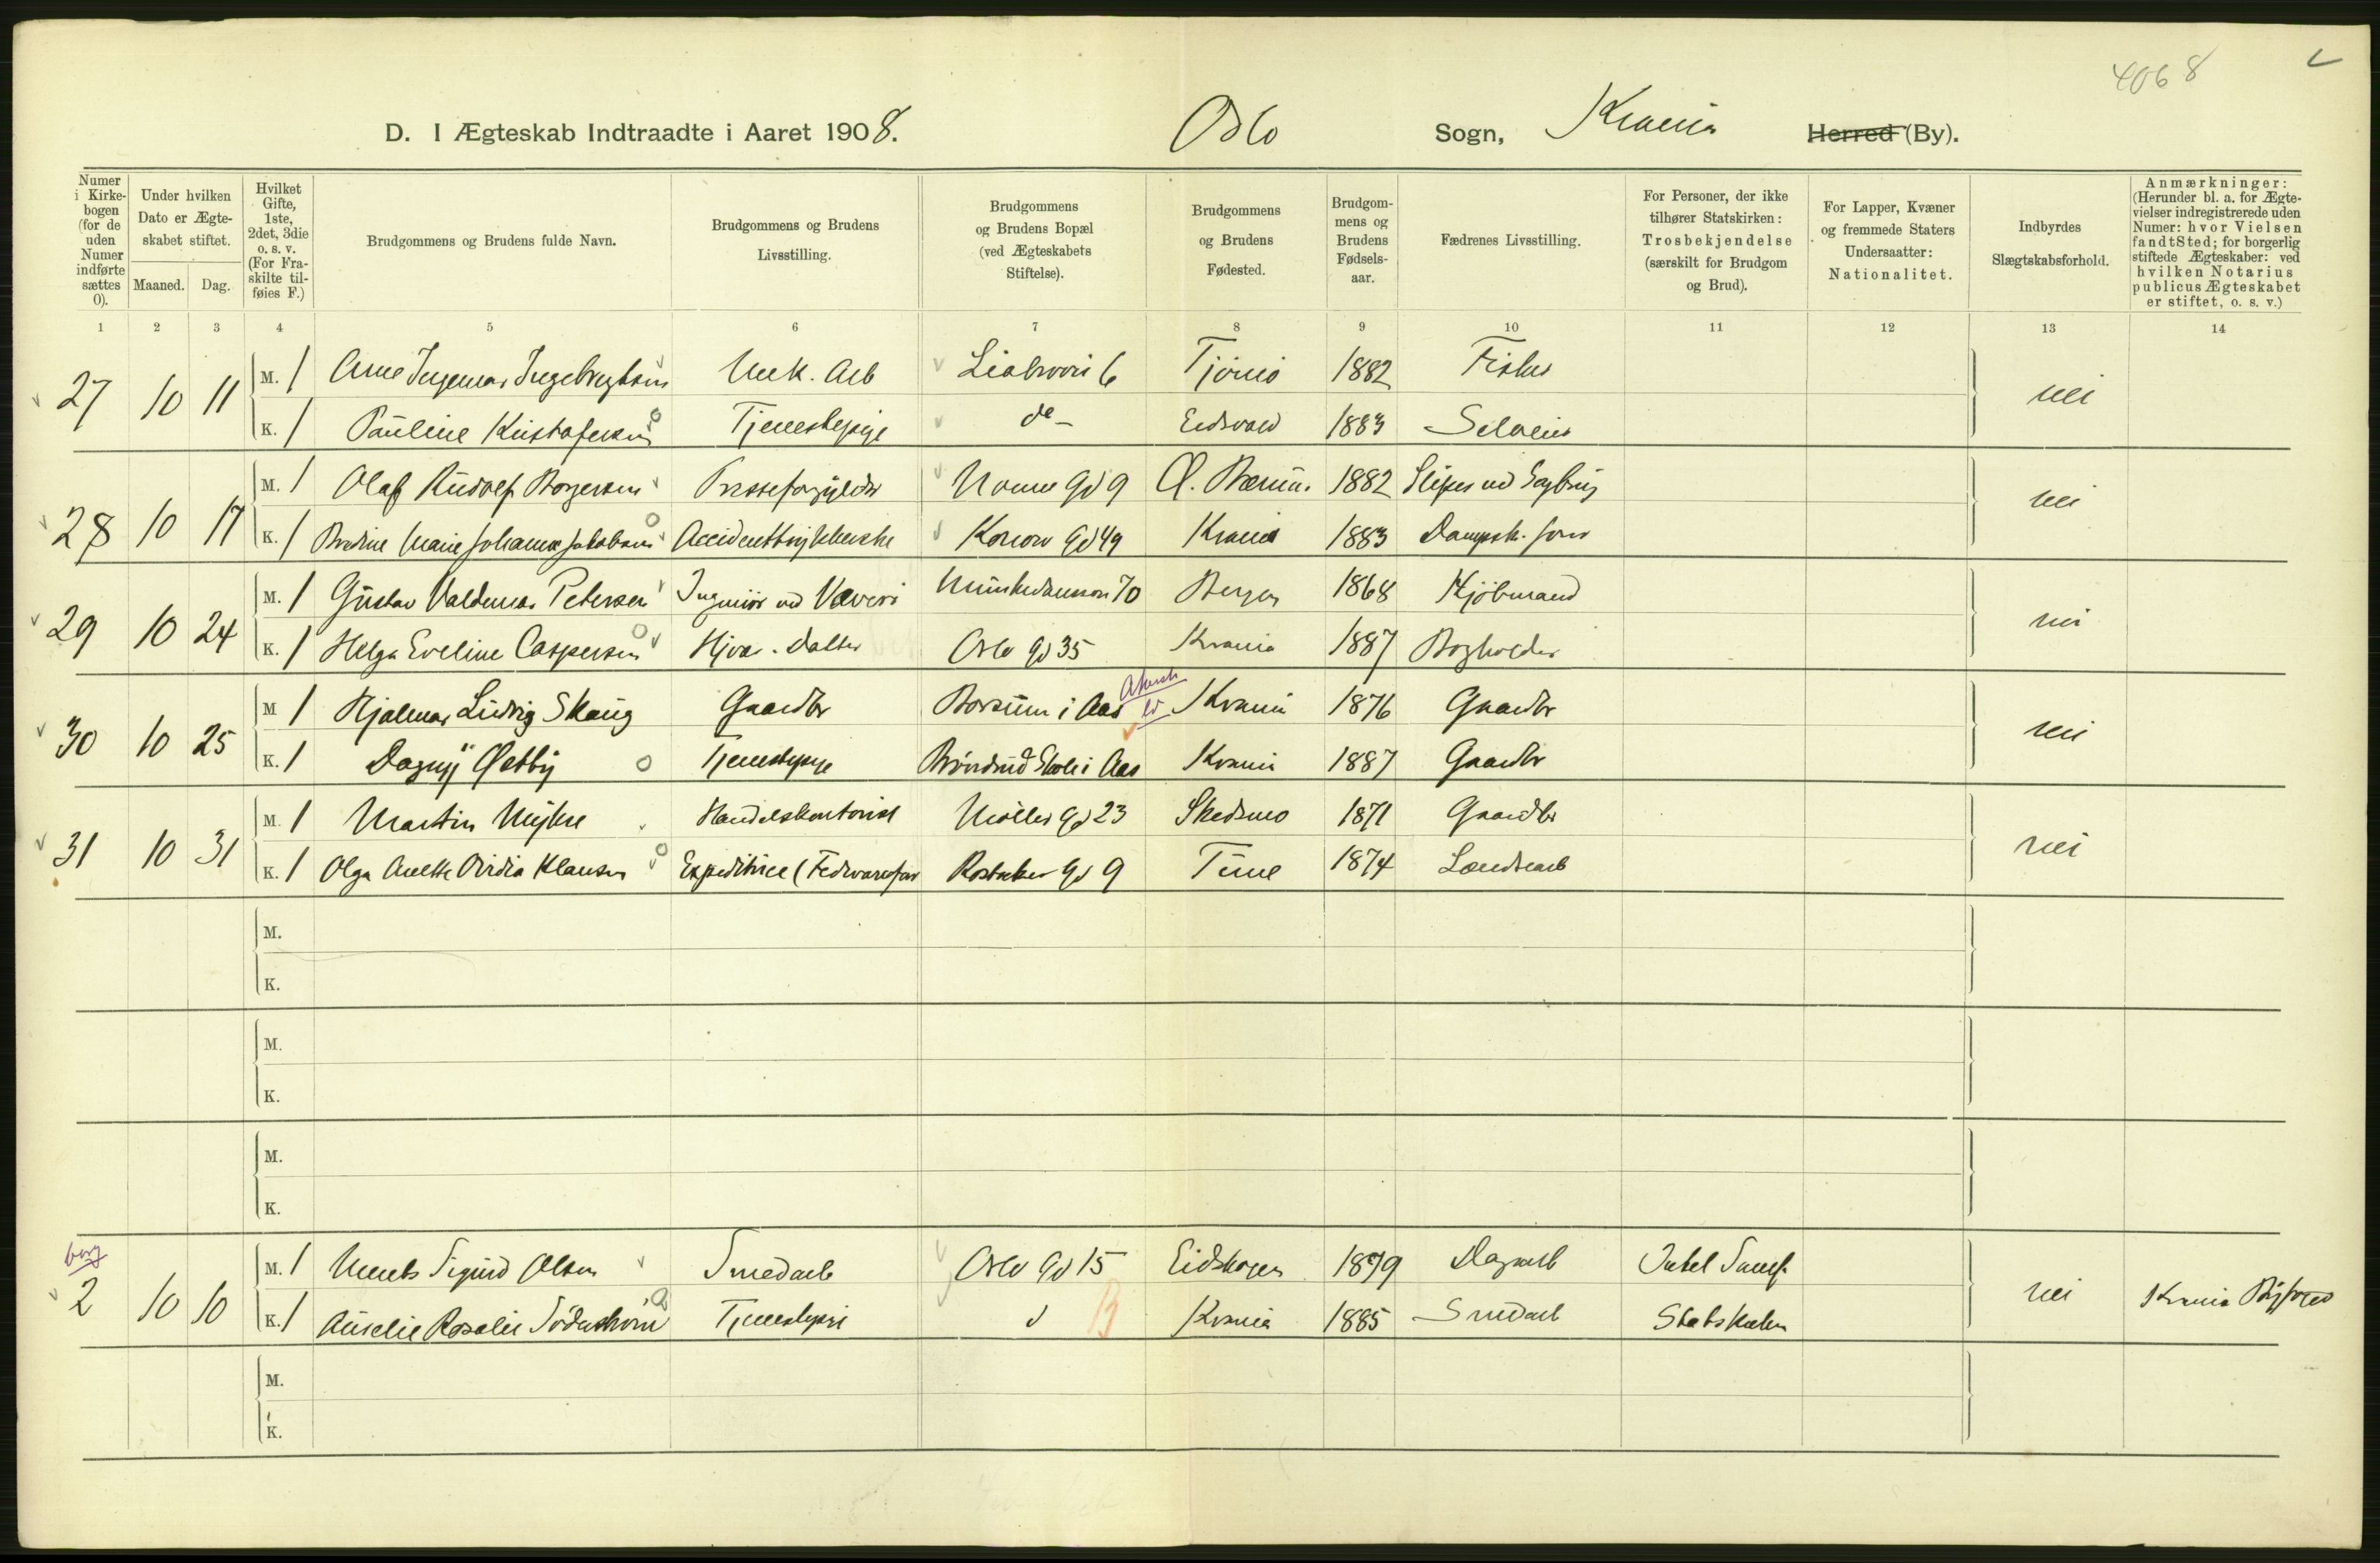 4068
D. I Ægteskab Indtraadte i Aaret 1908. Oslo Sogn, Krania Herred (By).
Numer i Kirkebogen (for de uden Numer indførte sættes 0).
Under hvilken Dato er Ægteskabet stiftet.
Maaned. Dag.
Hvilket Gifte, 1ste, 2det, 3die o. s. v. (For Fraskilte tilføies F.)
Brudgommens og Brudens fulde Navn.
Brudgommens og Brudens Livsstilling.
Brudgommens og Brudens Bopæl (ved Ægteskabets Stiftelse).
Brudgommens og Brudens Fødested.
Brudgommens og Brudens Fødselsaar.
Fædrenes Livsstilling.
For Personer, der ikke tilhører Statskirken: Trosbekjendelse (særskilt for Brudgom og Brud).
For Lapper, Kvæner og fremmede Staters Undersaatter: Nationalitet.
Indbyrdes Slægtskabsforhold.
Anmærkninger: (Herunder bl. a. for Ægtevielser indregistrerede uden Numer: hvor Vielsen fandt Sted; for borgerlig stiftede Ægteskaber: ved hvilken Notarius publicus Ægteskabet er stiftet, o. s. v.)
1 2 3 4 5 6 7 8 9 10 11 12 13 14
27 10 11 M. 1 Arne Ingemar Ingebregtsen Mek. Arb Liabrovei 6 Tjømø 1882 Fisker nei
K. 1 Pauline Kristofersen Tjenestepige do Eidsvold 1883 Selveier
28 10 17 M. 1 Olaf Rudolf Borgersen Presseforgylder Norme Gd 9 Ø. Bærum. 1882 Sliper nei
K. 1 Marie Johanne Jakobsen Kanow Gd 49 Krania 1883 Dampsk.
29 10 24 M. 1 Gustav Valdemar Petersen Ingeniør ved Væveri Munkedamsvn 70 Bergen 1868 Kjøbmand nei
K. 1 Helga Eveline Caspersen Hjv. Datter Oslo Gd 35 Krania 1887 Bogholder
30 10 25 M 1 Hjalmar Ludvig Skaug Gaardbr i Aas Akersh Krania 1876 Gaardbr nei
K. 1 Dagny Østby Tjenestepige Brønderud Skole i Aas Krania 1887 Gaardbr
31 10 31 M. 1 Martin Myhre Handelskontorist Møller Gd 23 Skedsmo 1871 Gaardbr nei
K. 1 Olga Anette Klausen Expeditrice (Fedevareforr Rostocker Gd 9 Time 1874 Landhand
M.
K.
M.
K.
M.
K.
borg
2 10 10 M. 1 Sigurd Olsen Smedarb Oslo Gd 15 Eidskogen 1879 Dagarb Intet Samf. nei Krania Byfoged
K. 1 Aurelie Rosalie Söderstrøm Tjenestepige d B Krania 1885 Smedarb Statskirken
M.
K.